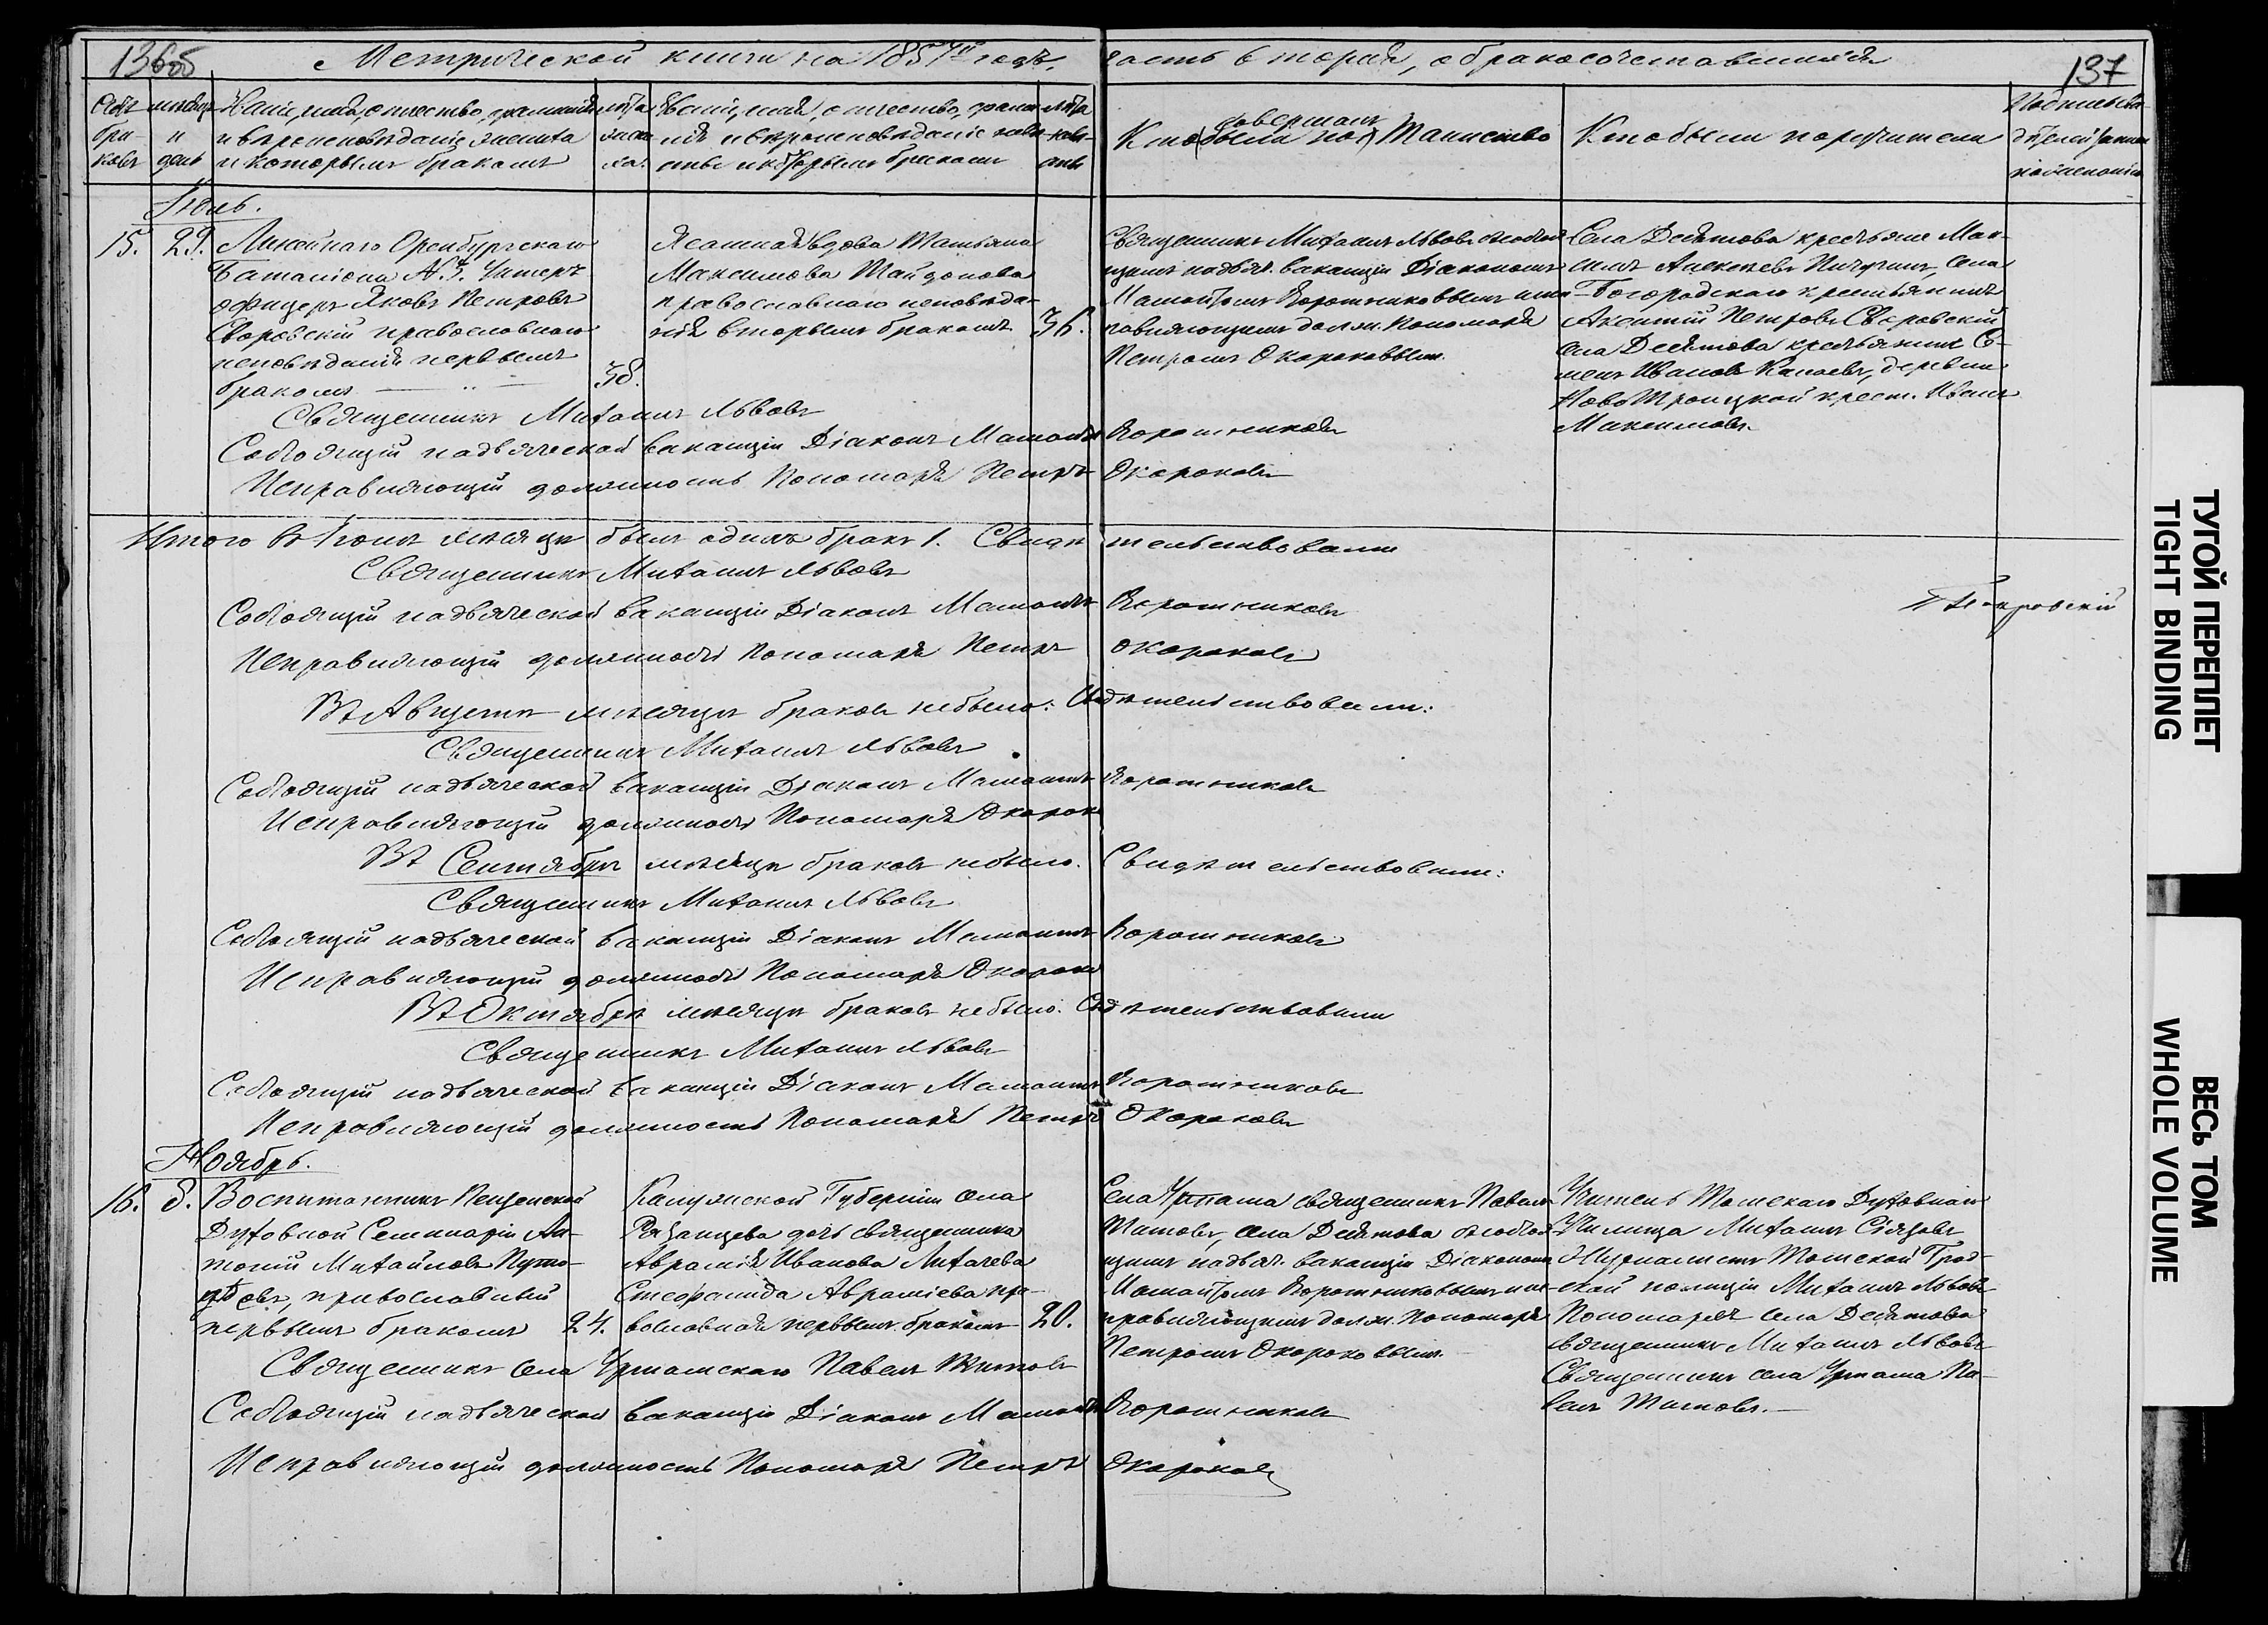 136об
Метрической книги на 1857й годъ, часть вторая, о бракосочетавшихся
137
Счетъ браковъ
мѣсяцъ и день
Званіе, имя, отчество, фамилія и вѣроисповѣданіе жениха и которымъ бракомъ
лѣта жениха
Званіе, имя, отчество, фамилія и вѣроисповѣданіе невѣсты и которымъ бракомъ
лѣта невѣсты
Кто совершалъ Таинство
Кто были поручители
Іюль.
15. 29.
Линейнаго Оренбургскаго
Баталіона № 3. Унтеръ
офицеръ Яковъ Петровъ
православнаго
исповѣданія первымъ
бракомъ
38.
Ясашная вдова Татьяна
Максимова
православнаго исповѣда-
нія вторымъ бракомъ
36.
Священникъ Михаилъ Львовъ съ состоя-
щимъ на дьяч. вакансіи Діакономъ
Мамонтомъ Воротниковымъ и ис-
правляющимъ должн. Пономаря
Петромъ Окороковымъ.
Села Десятова крестьяне Мак-
симъ Алексѣевъ Пичугинъ, села
Богородскаго крестьянинъ
Петровъ
села Десятова крестьянинъ Се-
менъ Ивановъ деревни
НовоТроицкой крест. Иванъ
Максимовъ.
Священникъ Михаилъ Львовъ
Состоящій на дьяческой вакансіи Діаконъ Мамонтъ Воротниковъ
Исправляющій должность Пономаря Петръ Окороковъ
Итого въ Іюлѣ мѣсяцѣ былъ одинъ бракъ 1. Свидѣтельствовали
Священникъ Михаилъ Львовъ
Состоящій на дьяческой вакансіи Діаконъ Мамонтъ Воротниковъ
Исправляющій должность Пономаря Петръ Окороковъ
Въ Августѣ мѣсяцѣ браковъ небыло: Свидѣтельствовали:
Священникъ Михаилъ Львовъ
Состоящій на дьяческой вакансіи Діаконъ Мамонтъ Воротниковъ
Исправляющій должность Пономаря Окороковъ
Въ Сентябрѣ мѣсяцѣ браковъ небыло. Свидѣтельствовали:
Священникъ Михаилъ Львовъ
Состоящій на дьяческой вакансіи Діаконъ Мамонтъ Воротниковъ
Исправляющій должность Пономаря Окороковъ
Въ Октябрѣ мѣсяцѣ браковъ небыло. Свидѣтельствовали
Священникъ Михаилъ Львовъ
Состоящій на дьяческой вакансіи Діаконъ Мамонтъ Воротниковъ
Исправляющій должность Пономаря Петръ Окороковъ
Ноябрь.
16. 8.
Воспитанникъ Пензенской
Духовной Семинаріи Ан-
тоній Михайловъ
православный
первымъ бракомъ
24.
Калужской Губерніи села
Рязанцева дочь священника
Аврамія Иванова Лихачева
Авраміева пра-
вославная первымъ бракомъ
20.
Села Уртама священникъ Павелъ
Титовъ, села Десятова съ состоя-
щимъ на дьяч. вакансіи Діакономъ
Мамонтомъ Воротниковымъ и ис-
правляющимъ должн. Пономаря
Петромъ Окороковымъ.
Учитель Томскаго Духовнаго
Училища Михаилъ
Журналистъ Томской Град-
ской полиціи Михаилъ Львовъ
Пономаревъ села Десятова
священникъ Михаилъ Львовъ
Священникъ села Уртама Па-
велъ Титовъ.
Священникъ села Уртамскаго Павелъ Титовъ
Состоящій на дьяческой вакансіи Діаконъ Мамонтъ Воротниковъ
Исправляющій должность Пономаря Петръ Окороковъ
ТУГОЙ ПЕРЕПЛЕТ
TIGHT BINDING
ВЕСЬ ТОМ
WHOLE VOLUME